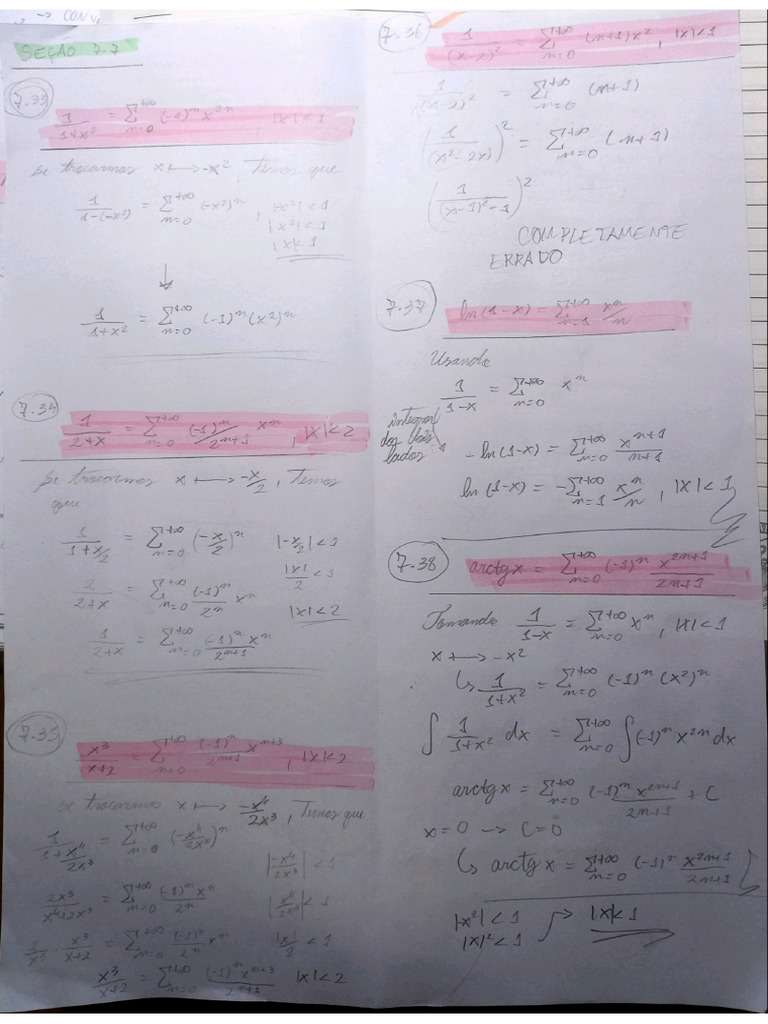 → CONV.
SEÇÃO 7.7
7.33
1/(1+x²) = Σ_{n=0}^{+∞} (-1)ⁿ x²ⁿ , |x| < 1
Se trocarmos x ⟼ -x², temos que
1/(1-(-x²)) = Σ_{n=0}^{+∞} (-x²)ⁿ , |-x²| < 1
|x²| < 1
|x| < 1
↓
1/(1+x²) = Σ_{n=0}^{+∞} (-1)ⁿ (x²)ⁿ
7.34
1/(2+x) = Σ_{n=0}^{+∞} (-1)ⁿ/2ⁿ⁺¹ xⁿ , |x| < 2
Se trocarmos x ⟼ -x/2, temos
que
1/(1+x/2) = Σ_{n=0}^{+∞} (-x/2)ⁿ |-x/2| < 1
2/(2+x) = Σ_{n=0}^{+∞} (-1)ⁿ/2ⁿ xⁿ |x|/2 < 1
1/(2+x) = Σ_{n=0}^{+∞} (-1)ⁿxⁿ/2ⁿ⁺¹ |x| < 2
7.35
x³/(x+2) = Σ_{n=0}^{+∞} (-1)ⁿ/2ⁿ⁺¹ xⁿ⁺³ , |x| < 2
Se trocarmos x ⟼ -x⁴/2x³, temos que
1/(1+x⁴/2x³) = Σ_{n=0}^{+∞} (-x⁴/2x³)ⁿ |-x⁴/2x³| < 1
2x³/(x⁴+2x³) = Σ_{n=0}^{+∞} (-1)ⁿxⁿ/2ⁿ |x⁴/2x³| < 1
x³/(x+2) = Σ_{n=0}^{+∞} (-1)ⁿ/2ⁿ xⁿ |x|/2 < 1
x³/(x+2) = Σ_{n=0}^{+∞} (-1)ⁿxⁿ⁺³/2ⁿ⁺¹ |x| < 2
7.36
1/(x-2)² = Σ_{n=0}^{+∞} (n+1)x² , |x| < 1
1/(x-2)² = Σ_{n=0}^{+∞} (n+1)
(1/(x²-2x))² = Σ_{n=0}^{+∞} (n+1)
(1/((x-1)²-1))²
COMPLETAMENTE
ERRADO
7.37
ln(1-x) = Σ_{n=1}^{+∞} xⁿ/n
Usando
1/(1-x) = Σ_{n=0}^{+∞} xⁿ
Integral
dos dois
lados:
-ln(1-x) = Σ_{n=0}^{+∞} xⁿ⁺¹/(n+1)
ln(1-x) = -Σ_{n=1}^{+∞} xⁿ/n , |x| < 1
7.38
arctgx = Σ_{n=0}^{+∞} (-1)ⁿ x²ⁿ⁺¹/(2n+1)
Tomando 1/(1-x) = Σ_{n=0}^{+∞} xⁿ , |x| < 1
x ⟼ -x²
↳ 1/(1+x²) = Σ_{n=0}^{+∞} (-1)ⁿ (x²)ⁿ
∫ 1/(1+x²) dx = Σ_{n=0}^{+∞} ∫(-1)ⁿ x²ⁿ dx
arctgx = Σ_{n=0}^{+∞} (-1)ⁿ x²ⁿ⁺¹/(2n+1) + C
x=0 → C=0
↳ arctgx = Σ_{n=0}^{+∞} (-1)ⁿ x²ⁿ⁺¹/(2n+1)
|x²| < 1 → |x| < 1
|x|² < 1